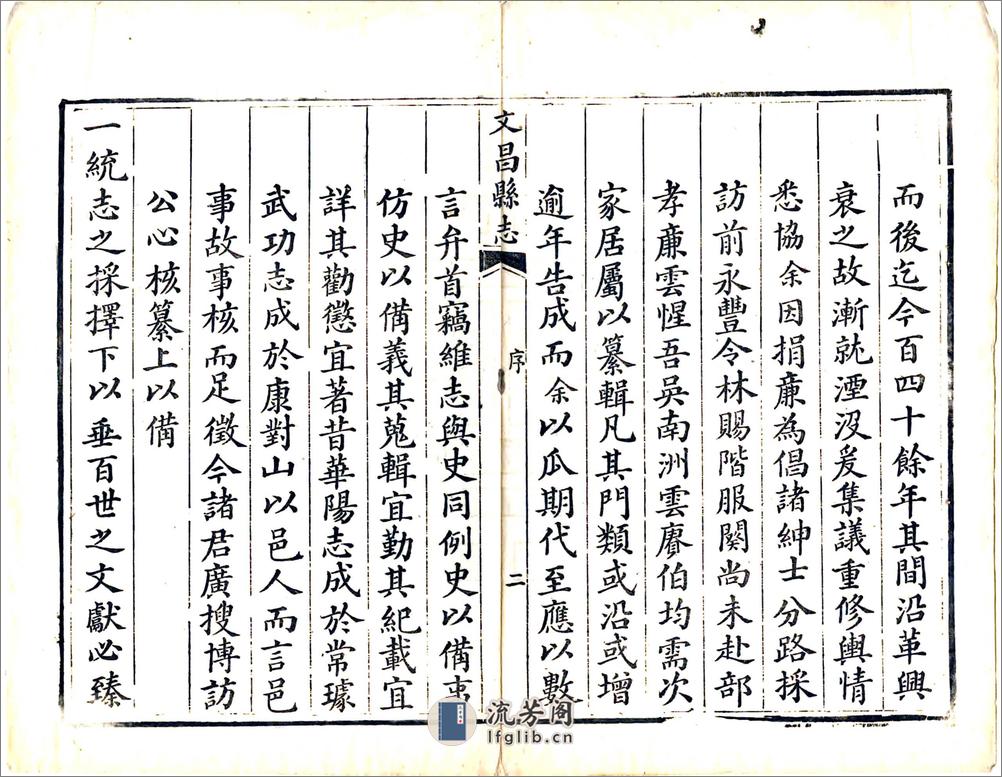 而後迄今百四十餘年其間沿革興
衰之故漸就湮沒爰集議重修輿情
悉協余因捐廉為倡諸紳士分路採
訪前永豐令林賜階服闋尚未赴部
孝廉雲惺吾吳南洲雲賡伯均需次
家居屬以纂輯凡其門類或沿或增
逾年告成而余以瓜期代至應以數
文昌縣志
序
二
言弁首竊維志與史同例史以備事
仿史以備義其蒐輯宜勤其紀載宜
詳其勸懲宜著昔華陽志成於常璩
武功志成於康對山以邑人而言邑
事故事核而足徵今諸君廣搜博訪
公心核纂上以備
一統志之採擇下以垂百世之文獻必臻
流芳閣
lfglib.cn